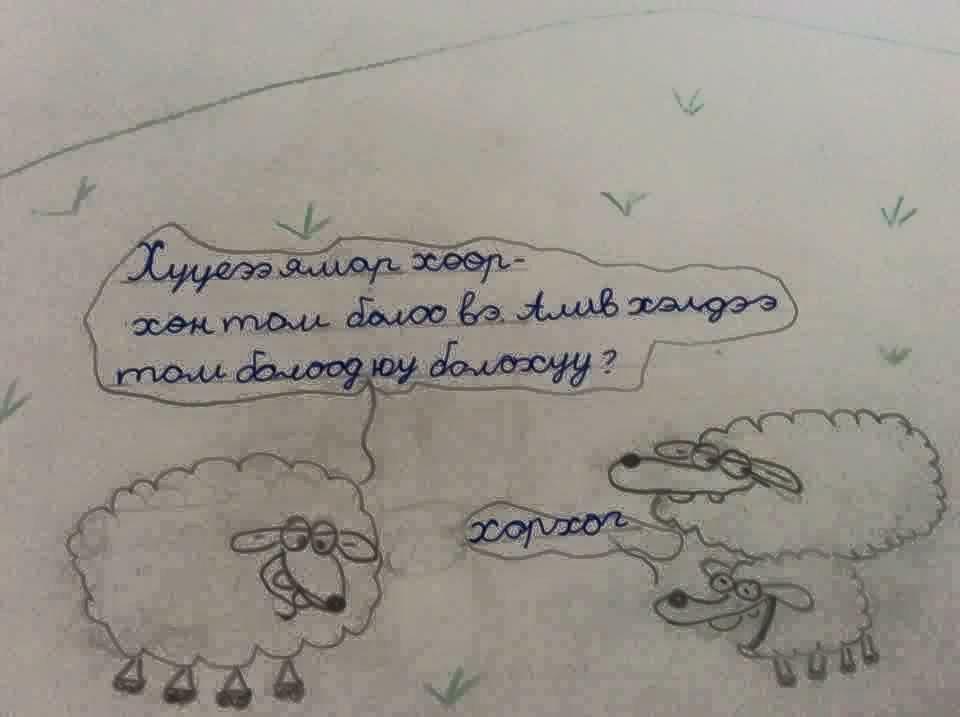 Хүүеээ ямар хөөр-
хөн том болоо вэ. Алив хэлдээ
том болоод юу болохуу?
хорхог